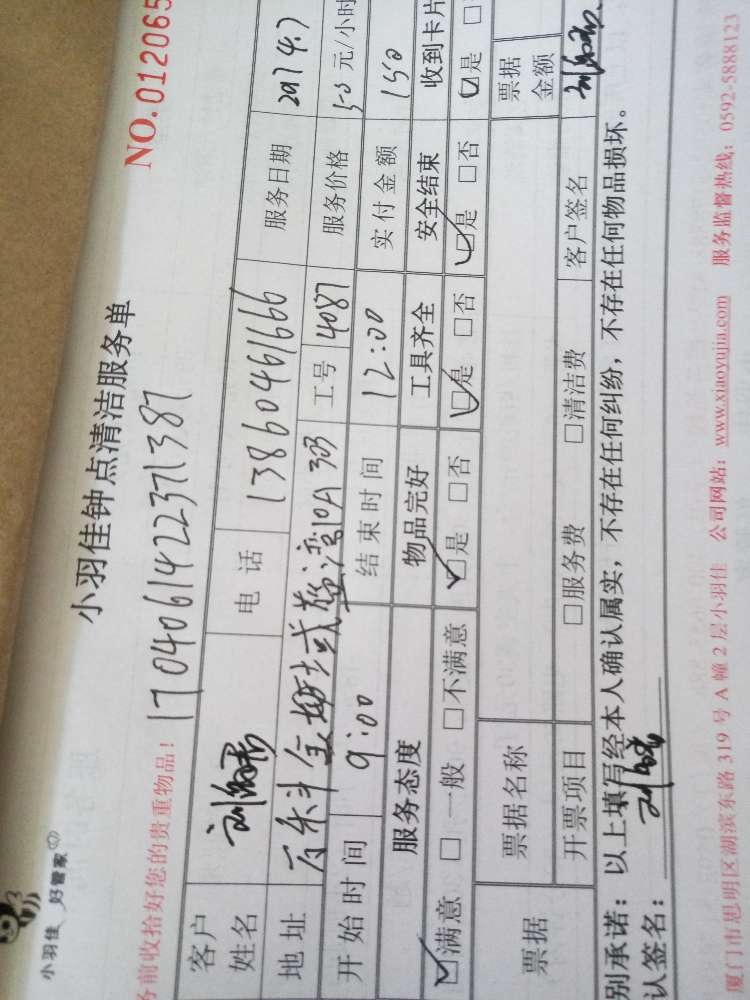 小羽佳 好管家
小羽佳钟点清洁服务单
NO.012065
务前收拾好您的贵重物品！ 1704061422371387
客户姓名 电话 13860461666 服务日期 2017 4.7
地址 10A 303 工号 4087 服务价格 50 元/小时
开始时间 9:00 结束时间 12:00 实付金额 150
服务态度 物品完好 工具齐全 安全结束 收到卡片
☑满意 □一般 □不满意 ☑是 □否 ☑是 □否 ☑是 □否 ☑是 □
票据 票据名称 票据金额
开票项目 □服务费 □清洁费 客户签名
别承诺：以上填写经本人确认属实，不存在任何纠纷，不存在任何物品损坏。
认签名：
厦门市思明区湖滨东路 319 号 A 幢 2 层小羽佳 公司网站：www.xiaoyujia.com 服务监督热线：0592-5888123